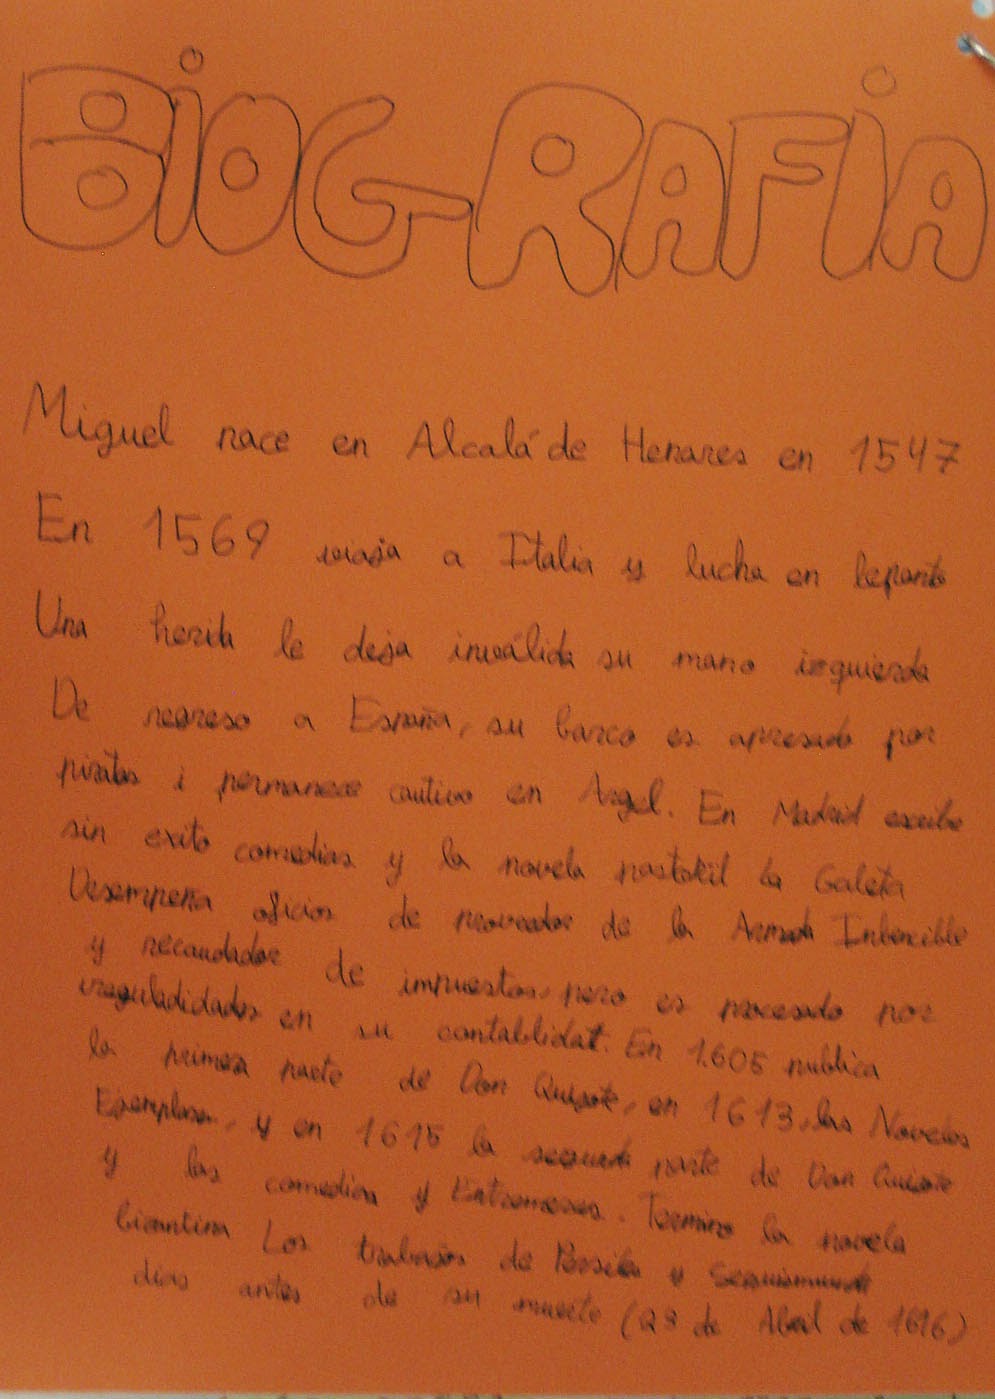 BiOGRAFiA
Miguel nace en Alcalá de Henares en 1547
En 1569 viaja a Italia y lucha en lepanto
Una herida le deja inválida su mano izquierda
De regreso a España, su barco es apresado por
piratas i permanece cautivo en Argel. En Madrid escribe
sin exito comedias y la novela pastoril la Galeta
Desempeña oficios de proveedor de la Armada Inbencible
y recaudador de impuestos, pero es procesado por
en su contablidat. En 1.605 publica
la primera parte de Don Quijote, en 1613, las Novelas
Ejemplares, y en 1615 la segunda parte de Don Quijote
y las comedias y Entremeses. Termino la novela
bizantina Los trabajos de Persiles y
dias antes de su muerte (23 de Abril de 1616)